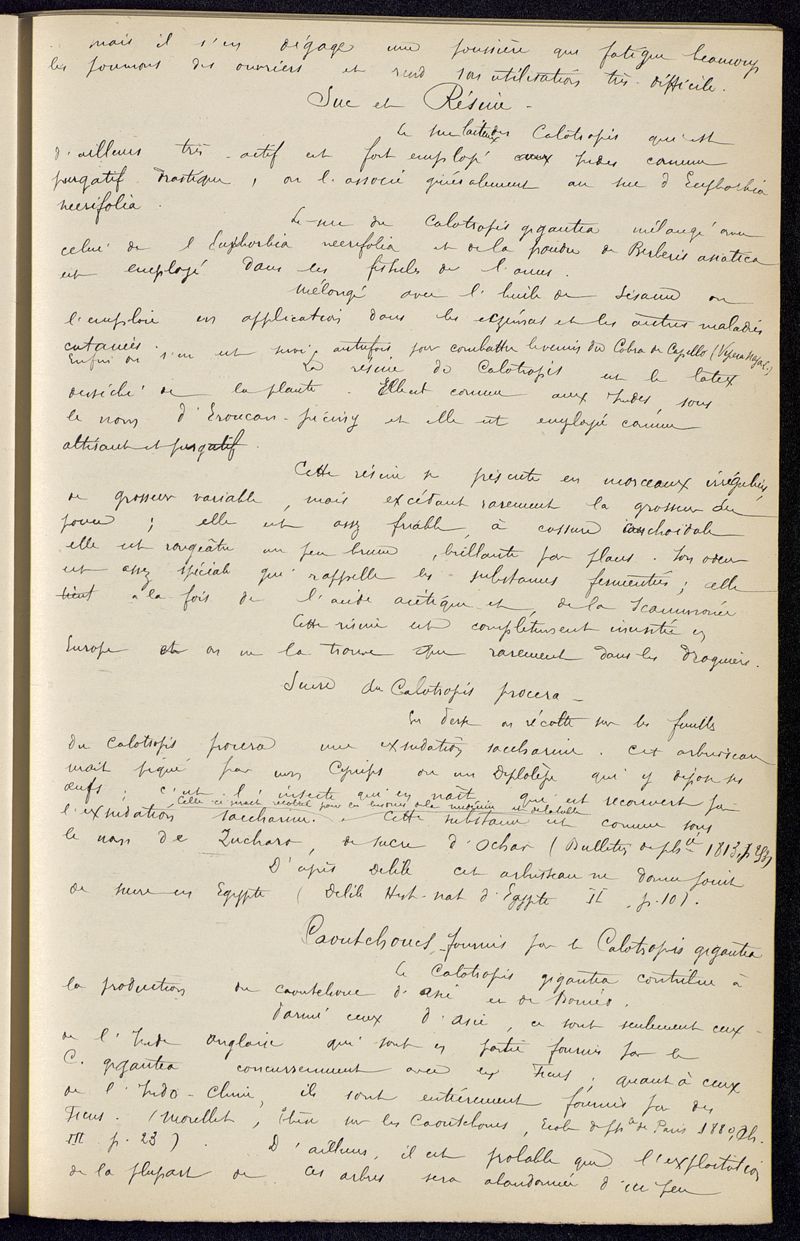 mais il s'en dégage une poussière qui fatigue beaucoup
les poumons des ouvriers et rend son utilisation très difficile.
Suc et Résine -
Le suc laiteux des Calotropis qui est
d'ailleurs très actif est fort employé aux Indes comme
purgatif drastique, on l'associe généralement au suc d'Euphorbia
neerifolia.
Le suc du Calotropis gigantea mélangé avec
celui de l'Euphorbia neerifolia et de la poudre de Berberis asiatica
est employé dans les fistules de l'anus.
Mélangé avec l'huile de Sésame on
l'emploie en application dans les eczémas et les autres maladies
cutanées.
Enfin on s'en est servi autrefois pour combattre le venin du Cobra de Capello (Vipera Najal.)
La résine de Calotropis est le latex
desséché de la plante. Elle est connue aux Indes, sous
le nom d' et elle est employée comme
altérant et purgatif.
Cette résine se présente en morceaux irréguliers,
de grosseur variable, mais excédant rarement la grosseur du
pouce ; elle est assez friable, à cassure conchoïdale
elle est rougeâtre un peu brune, brillante par places. Son odeur
est assez spéciale qui rappelle les substances fermentées ; elle
tient à la fois de l'acide acétique et de la Scammonée
Cette résine est complètement inusitée en
Europe et on ne la trouve que rarement dans les droguiers.
Sucre du Calotropis procera -
En Perse on récolte sur les feuilles
du Calotropis procera une exsudation saccharine. Cet arbrisseau
serait piqué par un Cynips ou un Diplolèpe qui y dépose ses
œufs ; c'est l'insecte qui en naît que est recouvert par
Celle ci serait récoltée pour
l'exsudation saccharine. Cette substance est connue sous
le nom de Zuchar, de sucre d'Ochar (Bulletin de phie 1813, p.
D'après Delile cet arbrisseau ne donne point
de sucre en Egypte (Delile Hist. nat d'Egypte II p. 10).
Caoutchoucs fournis par le Calotropis gigantea
Le Calotropis gigantea contribue à
la production du caoutchouc d'Asie et de Bornéo.
Parmi ceux d'Asie, ce sont seulement ceux
de l'Inde Anglaise qui sont en partie fournis par le
C. gigantea concurremment avec les Ficus ; quant à ceux
de l'Indo-Chine, ils sont entièrement fournis par des
Ficus. (Morellet, thèse sur les Caoutchoucs, Ecole de phie de Paris 1880, Ch.
III p. 23). D'ailleurs, il est probable que l'exploitation
de la plupart de ces arbres sera abandonnée d'ici peu